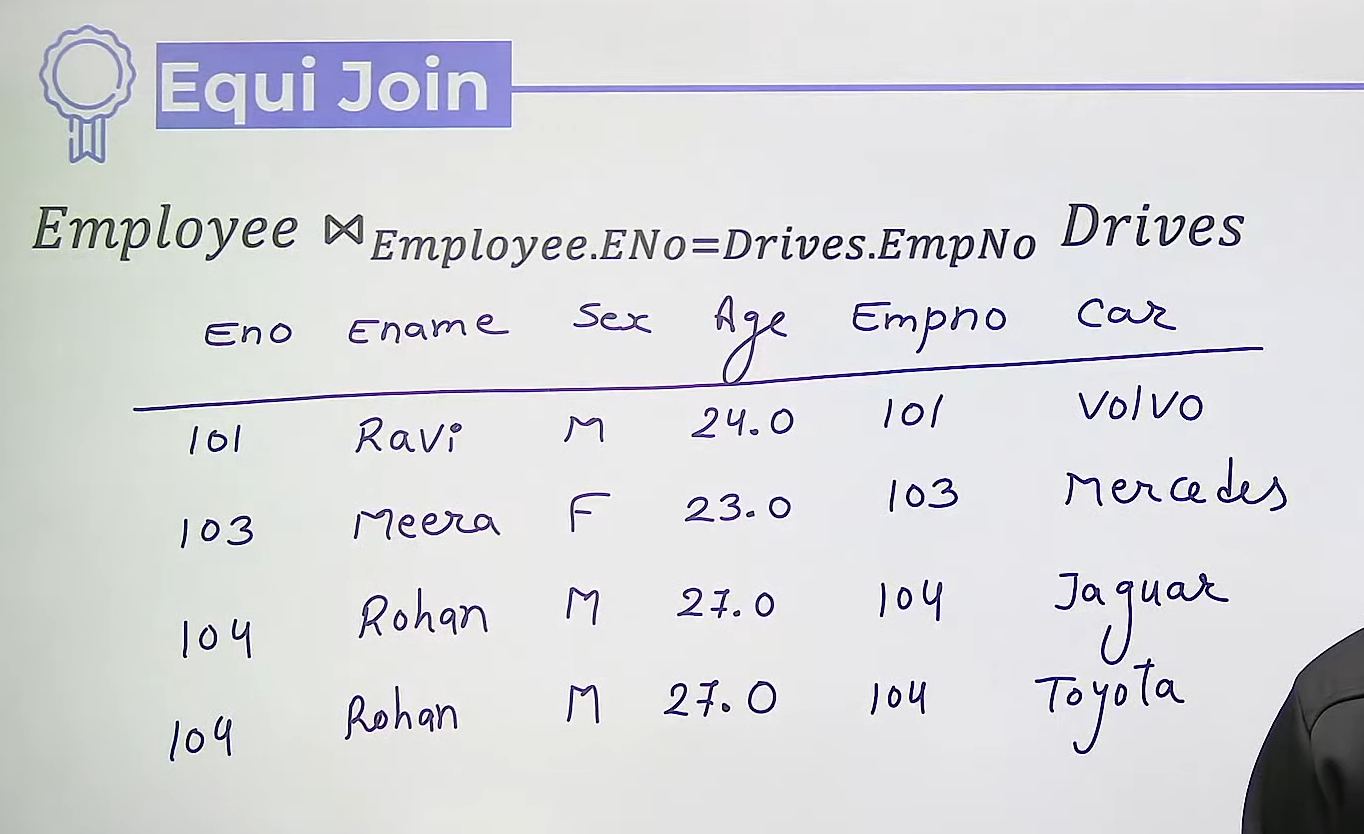 Equi Join
Employee ⋈ Employee.ENo=Drives.EmpNo Drives
Eno Ename Sex Age Empno Car
101 Ravi M 24.0 101 Volvo
103 Meera F 23.0 103 Mercedes
104 Rohan M 27.0 104 Jaguar
104 Rohan M 27.0 104 Toyota